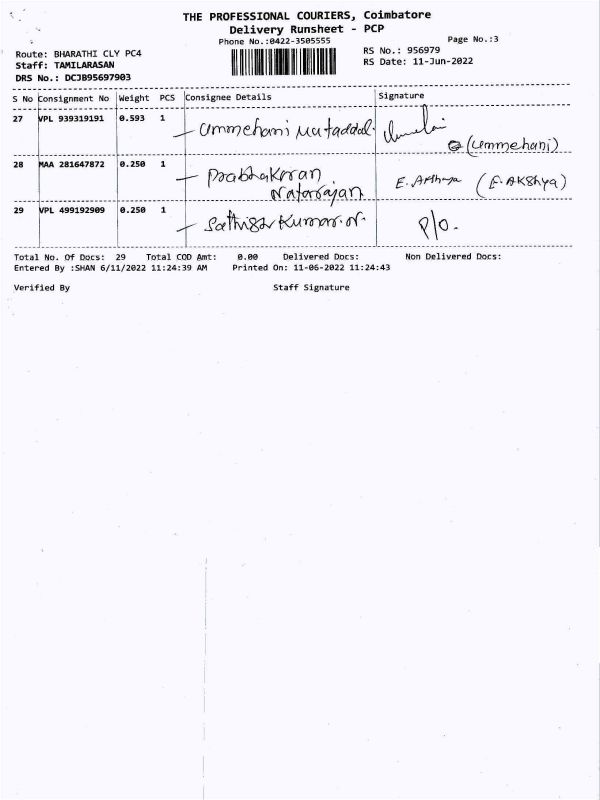 THE PROFESSIONAL COURIERS, Coimbatore
Delivery Runsheet - PCP
Phone No.:0422-3505555
Page No.:3
Route: BHARATHI CLY PC4
RS No.: 956979
Staff: TAMILARASAN
RS Date: 11-Jun-2022
DRS No.: DCJB95697903
S No Consignment No Weight PCS Consignee Details Signature
27 VPL 939319191 0.593 1 Ummehani Mutaddal.
(Ummehani)
28 MAA 281647872 0.250 1 Prabhakaran
Natarajan E. (E. AKShya)
29 VPL 499192909 0.250 1 Sathish Kumar.N. P/O.
Total No. Of Docs: 29 Total COD Amt: 0.00 Delivered Docs: Non Delivered Docs:
Entered By :SHAN 6/11/2022 11:24:39 AM Printed On: 11-06-2022 11:24:43
Verified By Staff Signature